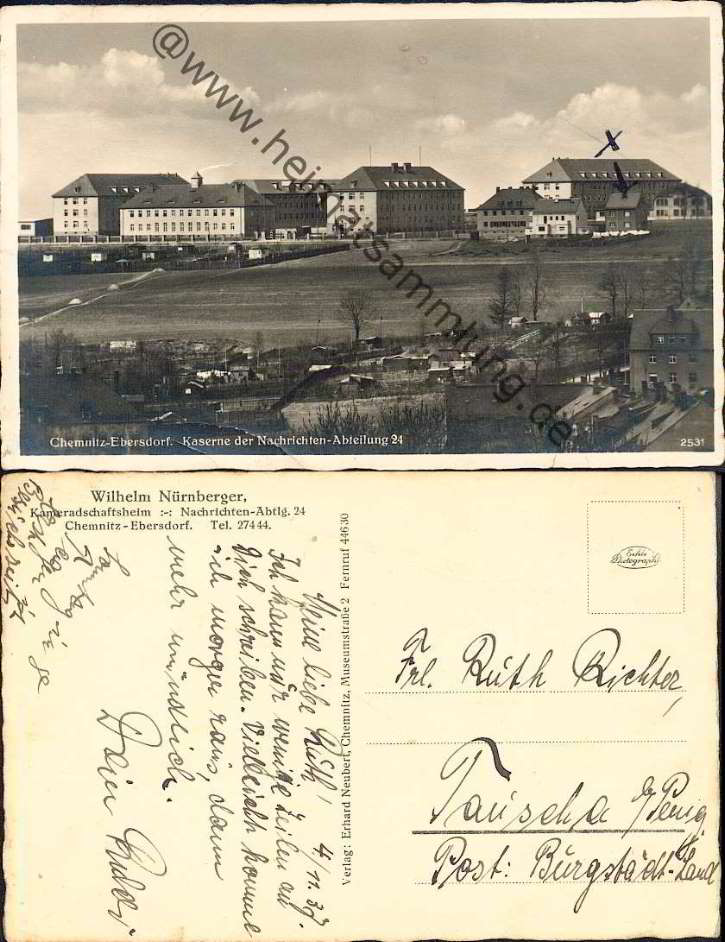 @www.heimatsammlung.de
Chemnitz-Ebersdorf. Kaserne der Nachrichten-Abteilung 24
2531
Wilhelm Nürnberger,
Kameradschaftsheim :-: Nachrichten-Abtlg. 24
Chemnitz-Ebersdorf. Tel. 27444.
Verlag: Erhard Neubert, Chemnitz, Museumstraße 2 Fernruf 44630
Echte
Photographie
4/11.37
Meine liebe Ruth!
Ich kann nur wenige Zeilen an
Dich schreiben. Vielleicht komme
ich morgen raus, dann
mehr mündlich.
Dein
Frl. Ruth Richter,
Tauscha b/Penig
Post: Burgstädt-Land